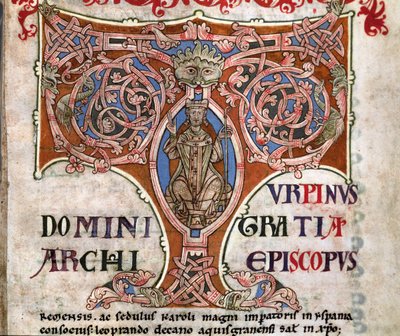 TURPINUS
DOMINI GRATIA
ARCHIEPISCOPUS
REMENSIS. ac sedulus karoli magni impatoris in yspania
consocius: leoprando decano aquisgranensi salt in xpo;